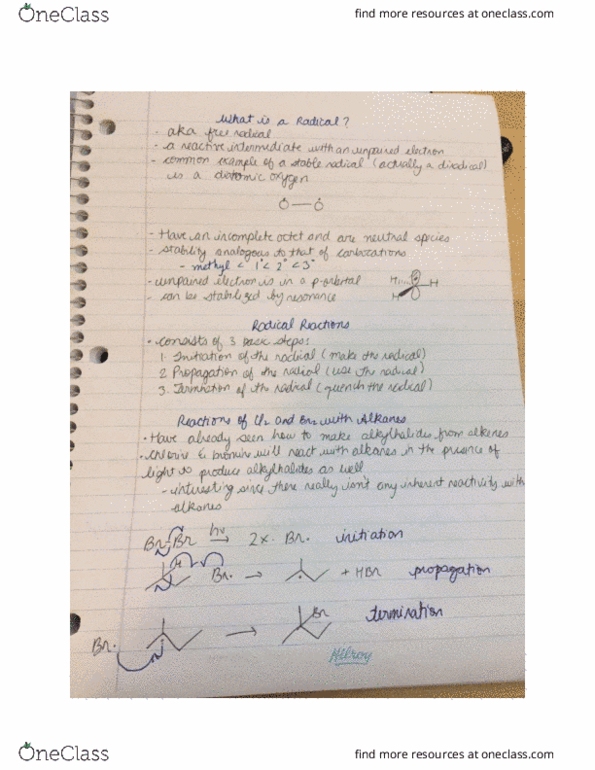 OneClass
find more resources at oneclass.com
What is a Radical?
- aka free radical
- a reactive intermediate with an unpaired electron
- common example of a stable radical (actually a diradical)
is a diatomic oxygen
O — O
- Have an incomplete octet and are neutral species
- stability analogous to that of carbocations
- methyl < 1° < 2° < 3°
- unpaired electron is in a p-orbital
- can be stabilized by resonance
H H
H
Radical Reactions
• consists of 3 basic steps:
1. Initiation of the radical (make the radical)
2. Propagation of the radical (use the radical)
3. Termination of the radical (quench the radical)
Reactions of Cl₂ and Br₂ with Alkanes
• Have already seen how to make alkylhalides from alkenes
• chlorine & bromine will react with alkanes in the presence of
light to produce alkylhalides as well
- interesting since there really isn't any inherent reactivity with
alkanes
Br-Br hv → 2x Br· initiation
H Br· → · + HBr propagation
Br· → Br termination
Hilroy
OneClass
find more resources at oneclass.com